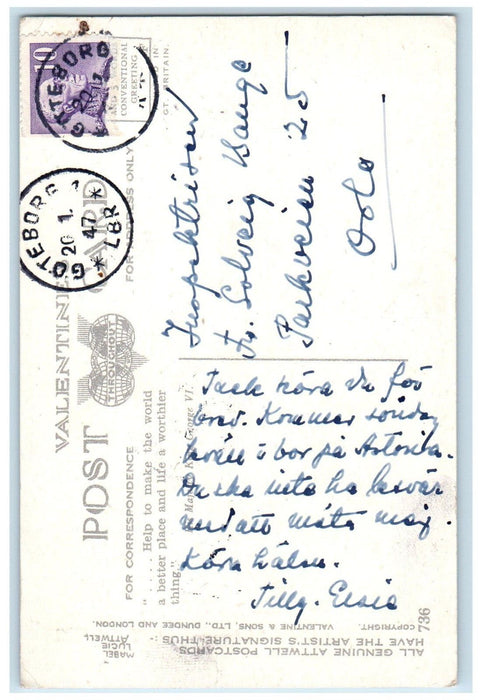 10
GÖTEBORG 1
20 1.
GÖTEBORG 1
20 1.
47
* LBR *
AND 5 WORDS
CONVENTIONAL
GREETING
IN
GT. BRITAIN.
VALENTINE'S
POST CARD
THROUGHOUT
FOR ADDRESS ONLY
FOR CORRESPONDENCE
"..... Help to make the world
a better place and life a worthier
thing"
George VI.
Inspektrisen
Fr. Solveig Bange
Parkveien 25
Oslo
Tack kära du för
brev. Kommer söndag
kväll o bor på Astoria.
Du ska inte ha besvär
med att möta mig.
Kära hälsn.
Tilly-Elsie
736
ALL GENUINE ATTWELL POSTCARDS
HAVE THE ARTIST'S SIGNATURE THUS:-
MABEL
LUCIE
ATTWELL
COPYRIGHT. VALENTINE & SONS, LTD., DUNDEE AND LONDON.